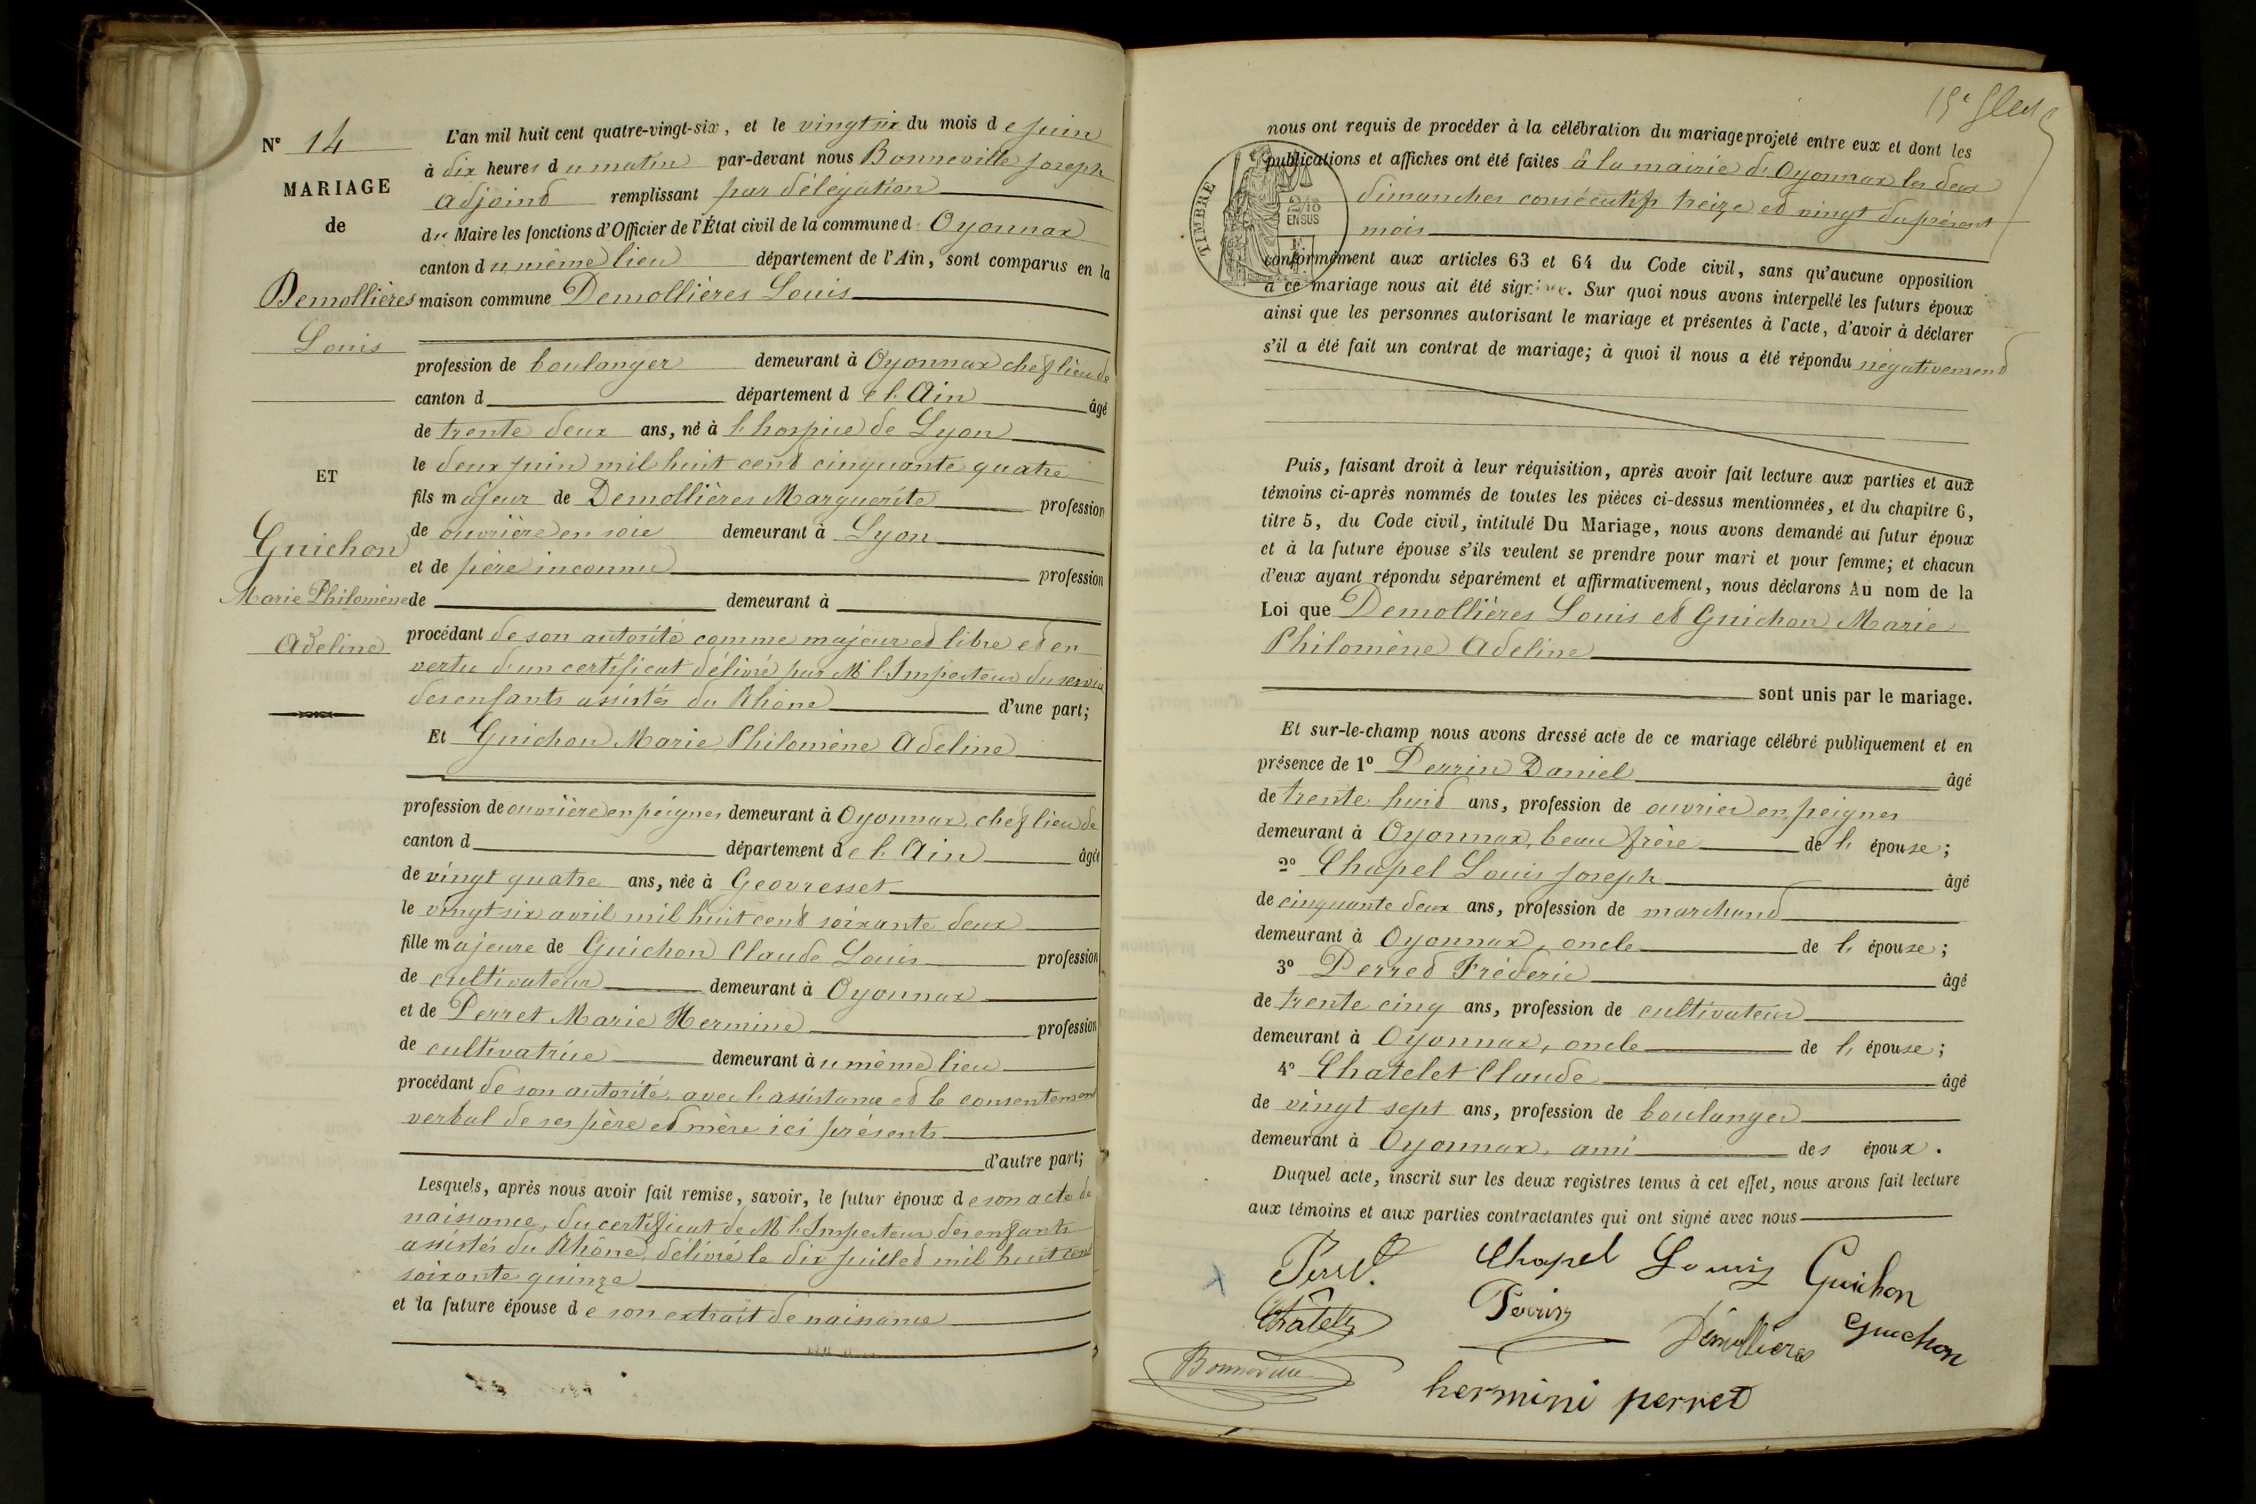 N° 14
MARIAGE
de
Demollières
Louis
ET
Guichon
Marie Philomène
Adeline
L'an mil huit cent quatre-vingt-six, et le vingt six du mois de juin
à dix heures du matin par-devant nous Bonneville Joseph
adjoint remplissant par délégation
du Maire les fonctions d'Officier de l'État civil de la commune d'Oyonnax
canton du même lieu département de l'Ain, sont comparus en la
maison commune Demollières Louis
profession de boulanger demeurant à Oyonnax chef lieu de
canton d département de l'Ain âgé
de trente deux ans, né à l'hospice de Lyon
le deux juin mil huit cent cinquante quatre
fils majeur de Demollières Marguerite profession
de ouvrière en soie demeurant à Lyon
et de père inconnu profession
de demeurant à
procédant de son autorité comme majeur et libre et en
vertu d'un certificat délivré par Mr l'Inspecteur du service
des enfants assistés du Rhône d'une part;
Et Guichon Marie Philomène Adeline
profession de ouvrière en peignes demeurant à Oyonnax, chef lieu de
canton d département de l'Ain âgée
de vingt quatre ans, née à Geovresset
le vingt six avril mil huit cent soixante deux
fille majeure de Guichon Claude Louis profession
de cultivateur demeurant à Oyonnax
et de Perret Marie Hermine profession
de cultivatrice demeurant àu même lieu
procédant de son autorité, avec l'assistance et le consentement
verbal de ses père et mère ici présents
d'autre part;
Lesquels, après nous avoir fait remise, savoir, le futur époux de son acte de
naissance, du certificat de Mr l'Inspecteur des enfants
assistés du Rhône, délivré le dix juillet mil huit cent
soixante quinze
et la future épouse de son extrait de naissance
nous ont requis de procéder à la célébration du mariage projeté entre eux et dont les
publications et affiches ont été faites à la mairie d'Oyonnax les deux
dimanches consécutifs treize et vingt du présent
mois
TIMBRE
2/10
EN SUS
conformément aux articles 63 et 64 du Code civil, sans qu'aucune opposition
à ce mariage nous ait été signifiée. Sur quoi nous avons interpellé les futurs époux
ainsi que les personnes autorisant le mariage et présentes à l'acte, d'avoir à déclarer
s'il a été fait un contrat de mariage; à quoi il nous a été répondu négativement
Puis, faisant droit à leur réquisition, après avoir fait lecture aux parties et aux
témoins ci-après nommés de toutes les pièces ci-dessus mentionnées, et du chapitre 6,
titre 5, du Code civil, intitulé Du Mariage, nous avons demandé au futur époux
et à la future épouse s'ils veulent se prendre pour mari et pour femme; et chacun
d'eux ayant répondu séparément et affirmativement, nous déclarons Au nom de la
Loi que Demollières Louis et Guichon Marie
Philomène Adeline
sont unis par le mariage.
Et sur-le-champ nous avons dressé acte de ce mariage célébré publiquement et en
présence de 1° Perrin Daniel âgé
de trente huit ans, profession de ouvrier en peignes
demeurant à Oyonnax, beau frère de l'épouse;
2° Chapel Louis Joseph âgé
de cinquante deux ans, profession de marchand
demeurant à Oyonnax, oncle de l'épouse;
3° Perret Fréderic âgé
de trente cinq ans, profession de cultivateur
demeurant à Oyonnax, oncle de l'épouse;
4° Chatelet Claude âgé
de vingt sept ans, profession de boulanger
demeurant à Oyonnax, ami des époux.
Duquel acte, inscrit sur les deux registres tenus à cet effet, nous avons fait lecture
aux témoins et aux parties contractantes qui ont signé avec nous
Chapel Louis Guichon
Perrin Demollières Guichon
Bonneville
hermini perret